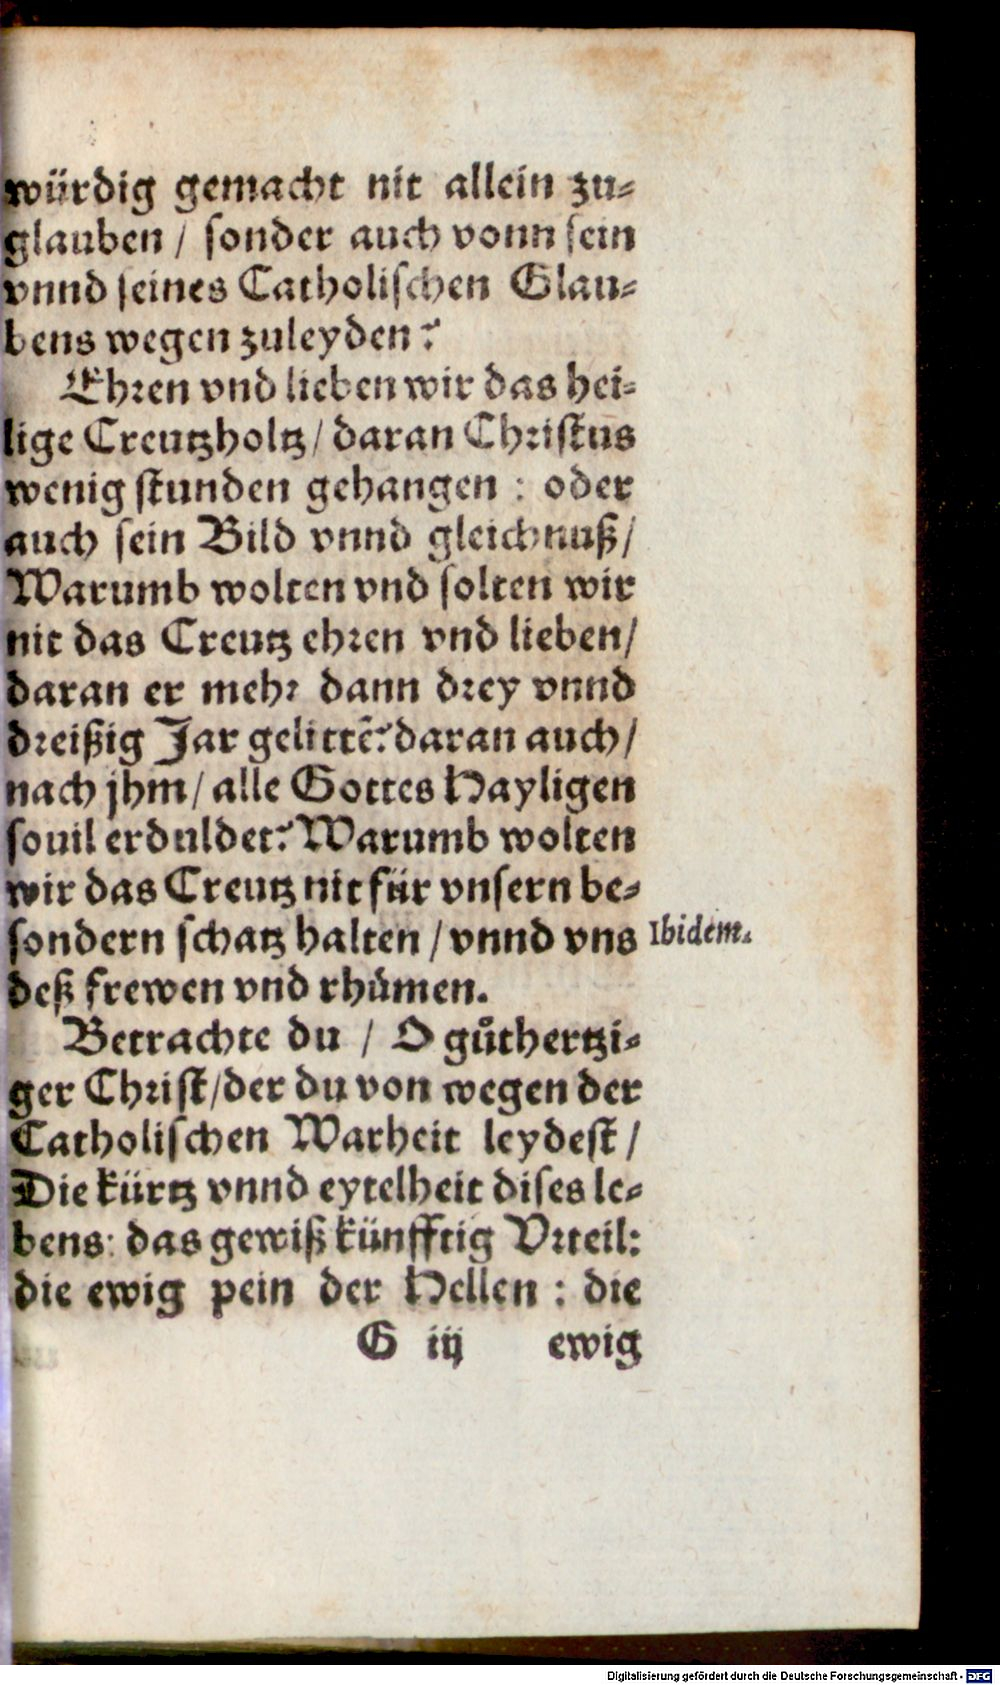 würdig gemacht nit allein zu-
glauben / sonder auch vonn sein
vnnd seines Catholischen Glau-
bens wegen zuleyden?
Ehren vnd lieben wir das hei-
lige Creutzholtz / daran Christus
wenig stunden gehangen : oder
auch sein Bild vnnd gleichnuß /
Warumb wolten vnd solten wir
nit das Creutz ehren vnd lieben /
daran er mehr dann drey vnnd
dreißig Jar gelittē? daran auch /
nach jhm / alle Gottes Hayligen
souil erduldet? Warumb wolten
wir das Creutz nit für vnsern be-
sondern schatz halten / vnnd vns
Ibidem.
deß frewen vnd rhuͤmen.
Betrachte du / O guͦthertzi-
ger Christ / der du von wegen der
Catholischen Warheit leydest /
Die kürtz vnnd eytelheit dises le-
bens: das gewiß künfftig Vrteil:
die ewig pein der Hellen : die
G iij ewig
Digitalisierung gefördert durch die Deutsche Forschungsgemeinschaft - DFG